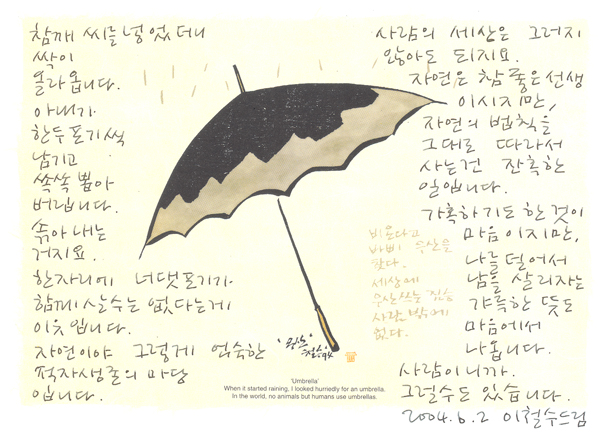 참깨 씨를 넣었더니
싹이
올라옵니다.
아내가
한두포기씩
남기고
쏙쏙 뽑아
버립니다.
솎아내는
거지요.
한자리에 너댓포기가
함께 살수는 없다는게
이웃입니다.
자연이야 그렇게 엄숙한
적자생존의 마당
입니다.
사람의 세상은 그러지
않아도 되지요.
자연은 참 좋은 선생
이시지만,
자연의 법칙을
그대로 따라서
사는건 잔혹한
일입니다.
가혹하기도 한 것이
마음이지만,
나를 덜어서
남을 살리자는
갸륵한 뜻도
마음에서
나옵니다.
사람이니까.
그럴수도 있습니다.
2004.6.2 이철수드림
비온다고
바삐 우산을
찾다.
세상에
우산쓰는 짐승
사람 밖에
없다.
'우산'
철수 94
'Umbrella'
When it started raining, I looked hurriedly for an umbrella.
In the world, no animals but humans use umbrellas.